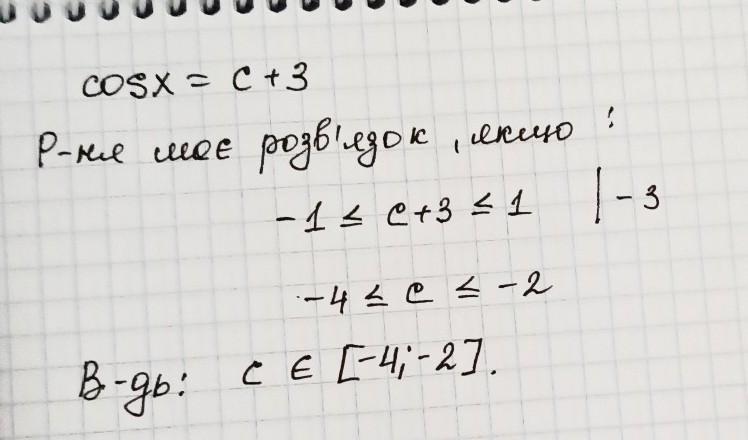 cosx = c + 3
Р-ня має розв'язок, якщо :
-1 ≤ c+3 ≤ 1 | - 3
-4 ≤ c ≤ -2
В-дь: c ∈ [-4; -2].